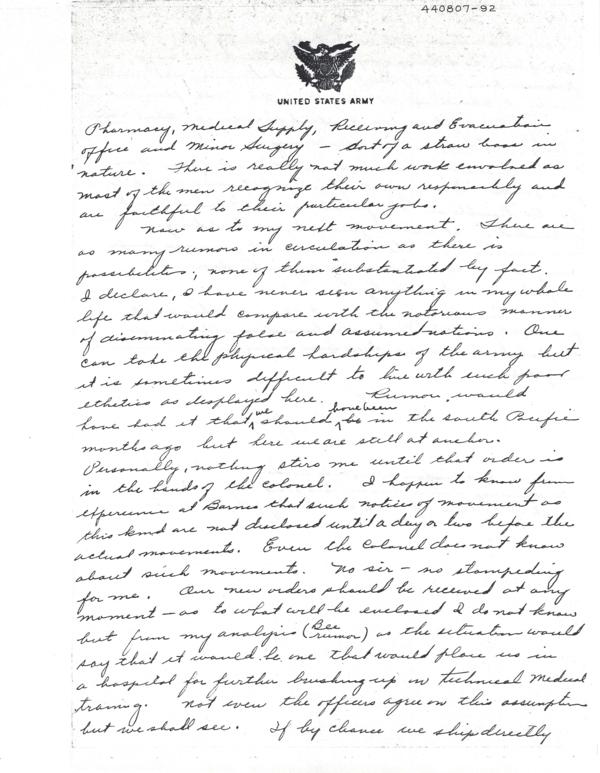 440807-92
UNITED STATES ARMY
Pharmacy, Medical Supply, Receiving and Evacuation
office and Minor Surgery — Sort of a straw boss in
nature. There is really not much work envolved as
most of the men recognize their own responsibly and
are faithful to their particular jobs.
Now as to my next movement. There are
as many rumors in circulation as there is
possibilities, none of them substantiated by fact.
I declare, I have never seen anything in my whole
life that would compare with the notorious manner
of disseminating false and assumed notions. One
can take the physical hardships of the army but
it is sometimes difficult to live with such poor
ethetics as desplayed here. Rumor would
have had it that we should have been in the South Pacific
months ago but here we are still at anchor.
Personally, nothing stirs me until that order is
in the hands of the colonel. I happen to know from
experience at Barnes that such notices of movement as
this kind are not disclosed until a day or two before the
actual movements. Even the Colonel does not know
about such movements. No sir — no stampeding
for me. Our new orders should be received at any
moment — as to what will be enclosed I do not know
but from my analysis (See rumor) as the situation would
say that it would be one that would place us in
a hospital for further brushing up on technical Medical
traing. Not even the officers agree on this assumption
but we shall see. If by chance we ship directly